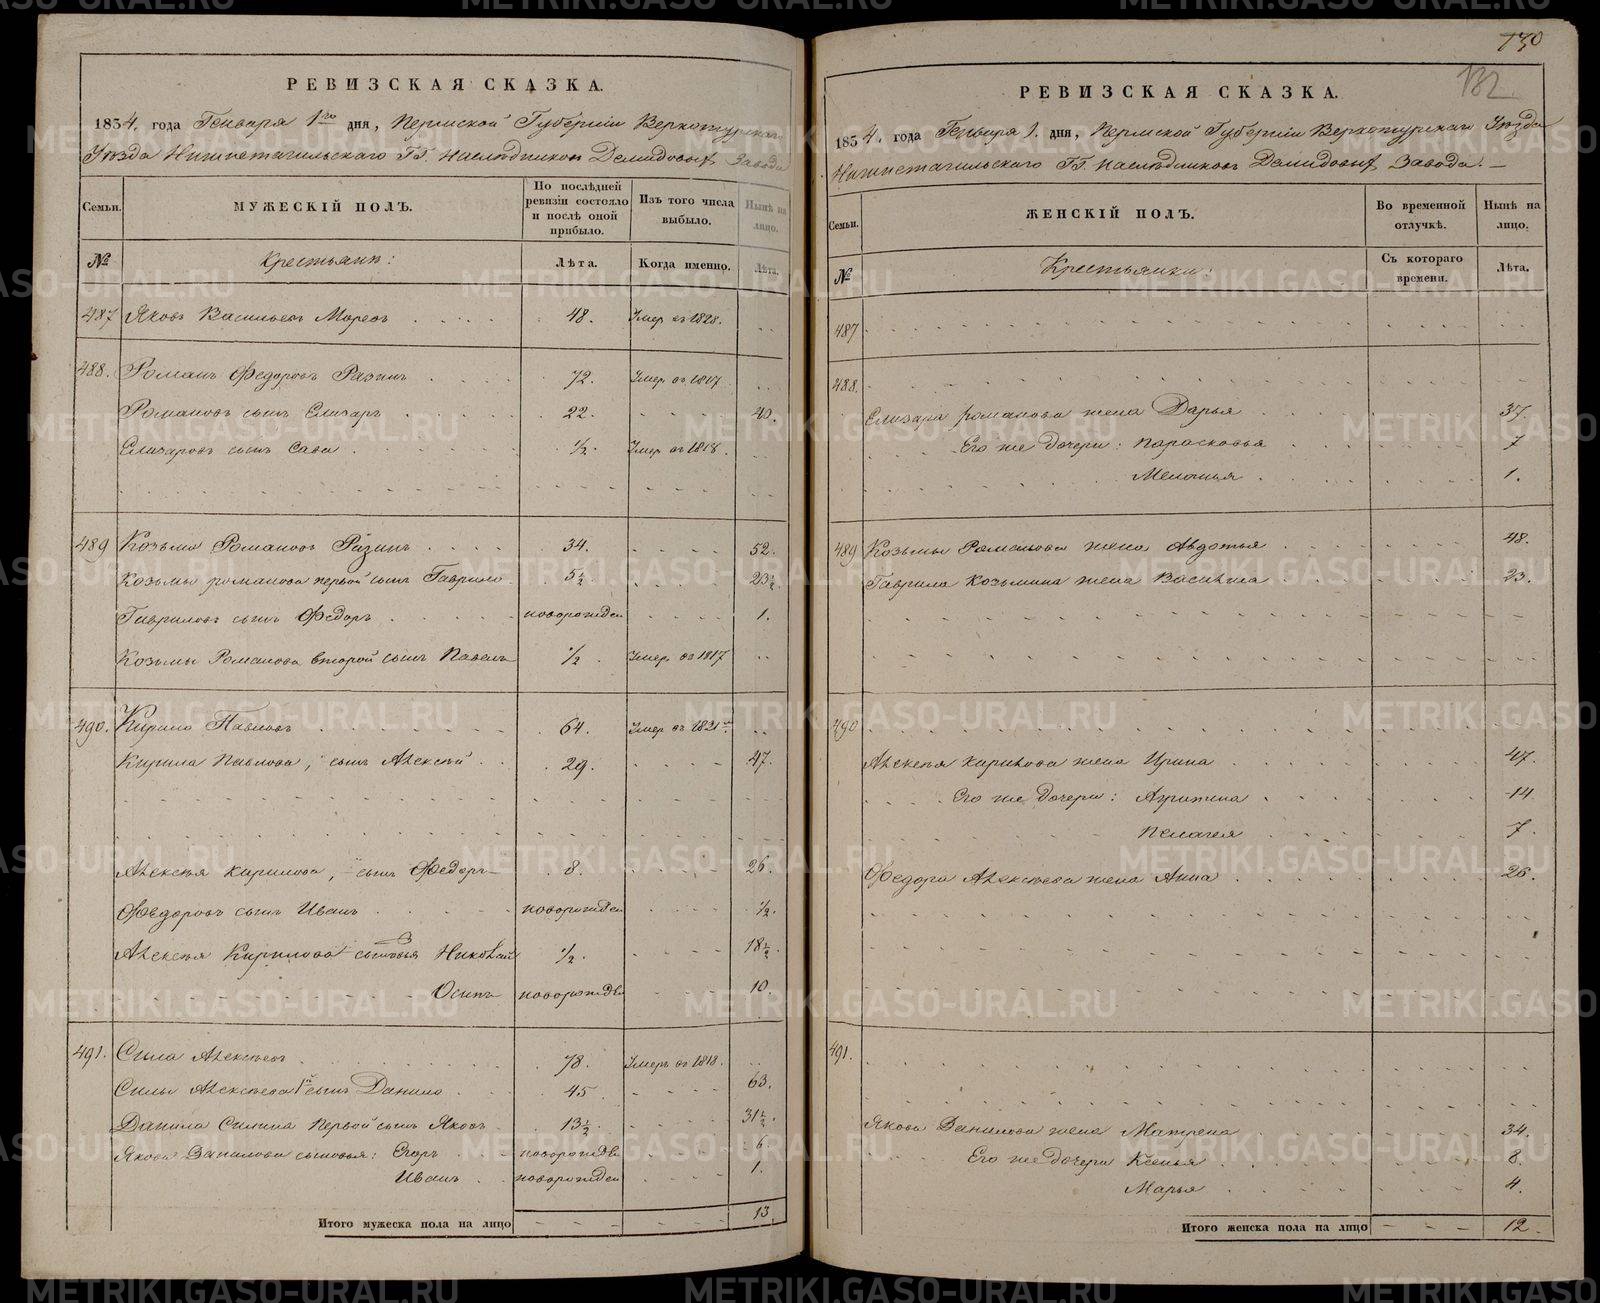 РЕВИЗСКАЯ СКАЗКА.
1834. года Генваря 1го дня, Пермской Губерніи Верхотурскаго
Уѣзда Нижнетагильскаго ГГ. Наслѣдниковъ Демидовыхъ Завода
Семьи.
МУЖЕСКІЙ ПОЛЪ.
По послѣдней ревизіи состояло и послѣ оной прибыло.
Изъ того числа выбыло.
Нынѣ на лицо.
№
Крестьянъ:
Лѣта.
Когда именно.
Лѣта.
487 Яковъ Васильевъ 48. Умер въ 1828.
488. Романъ Федоровъ Разинъ 72. Умер въ 1817
Романовъ сынъ Елизаръ 22. 40.
Елизаровъ сынъ Сава 1/2 Умер въ 1818
489 Козьма Романовъ Разинъ 34. 52.
Козьмы романова первой сынъ Гаврило 5 1/2 23 1/2
Гавриловъ сынъ Федоръ новорожден 1.
Козьмы Романова второй сынъ Павелъ 1/2 Умер въ 1817
490. Кирило Павловъ 64. Умер въ 1831
Кирила Павлова, сынъ Алексѣй 29. 47.
Алексѣя Кирилова, сынъ Федоръ 8. 26.
Федоровъ сынъ Иванъ новорожден 1/2.
Алексѣя Кирилова сыновья Николай 1/2. 18 1/2.
Осипъ новорожде 10.
491. Сила Алексѣевъ 78. Умеръ въ 1818.
Силы Алексѣева 1й сынъ Данило 45 63.
Данила Силина первой сынъ Яковъ 13 1/2. 31 1/2.
Якова Данилова сыновья: Егоръ новорожде 6
Иванъ новорожден 1.
Итого мужеска пола на лицо 13.
130
132
РЕВИЗСКАЯ СКАЗКА.
1834. года Генваря 1. дня, Пермской Губерніи Верхотурскаго Уѣзда
Нижнетагильскаго ГГ. Наслѣдниковъ Демидовыхъ Завода.
Семьи.
ЖЕНСКІЙ ПОЛЪ.
Во временной отлучкѣ.
Нынѣ на лицо.
№
Крестьянки:
Съ котораго времени.
Лѣта.
487
488.
Елизара романова жена Дарья 37.
Его же дочери: Парасковья 7
Меланья 1.
489 Козьмы Романова жена Авдотья 48.
Гаврила Козьмина жена Василиса 23.
490
Алексѣя Кирилова жена Ирина 47.
Его же дочери: 14
Пелагея 7.
Федора Алексѣева жена Анна 26.
491.
Якова Данилова жена Матрена 34.
Его же дочери Ксенья 8.
Марья 4.
Итого женска пола на лицо 12.
METRIKI.GASO-URAL.RU